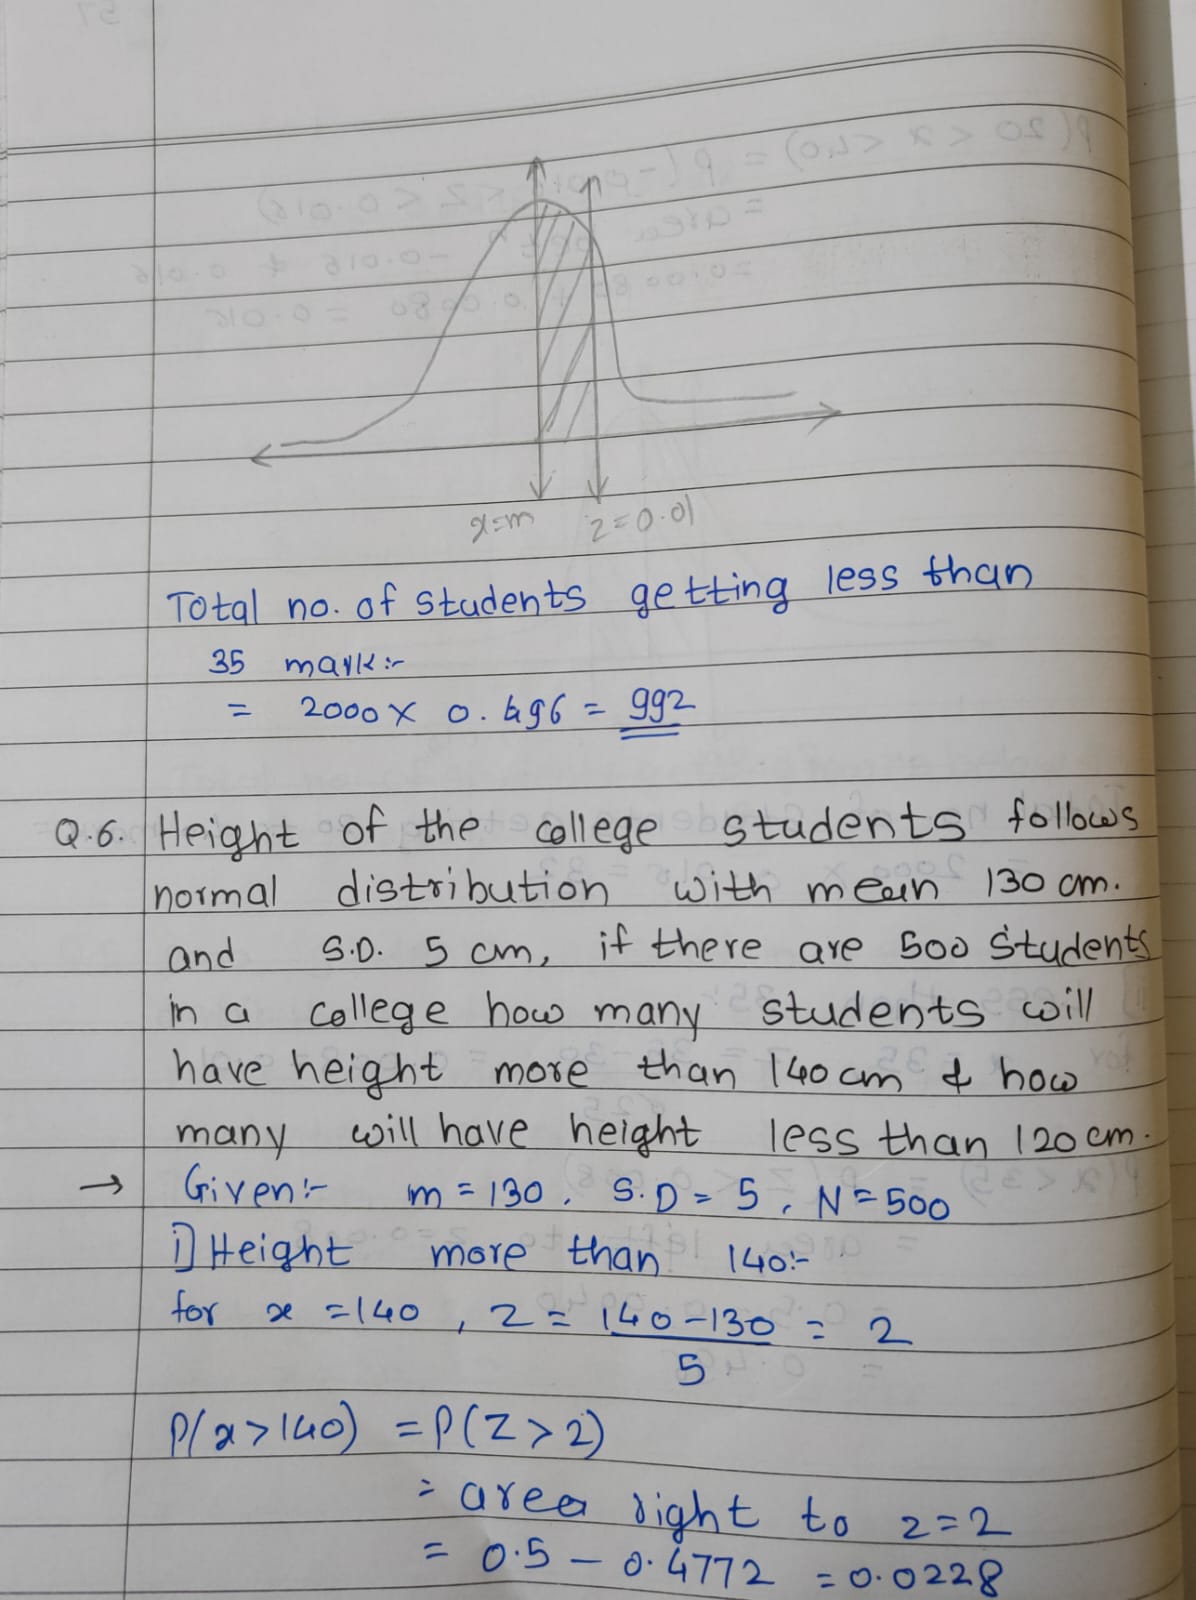 x=m z=0.01
Total no. of students getting less than
35 mark:-
= 2000 x 0.496 = 992
Q.6. Height of the college students follows
normal distribution with mean 130 cm.
and S.D. 5 cm, if there are 500 students
in a college how many students will
have height more than 140 cm & how
many will have height less than 120 cm.
→ Given:- m = 130, S.D = 5, N = 500
i] Height more than 140:-
for x = 140, z = 140-130 = 2
5
P(x > 140) = P(Z > 2)
= area right to z = 2
= 0.5 - 0.4772 = 0.0228